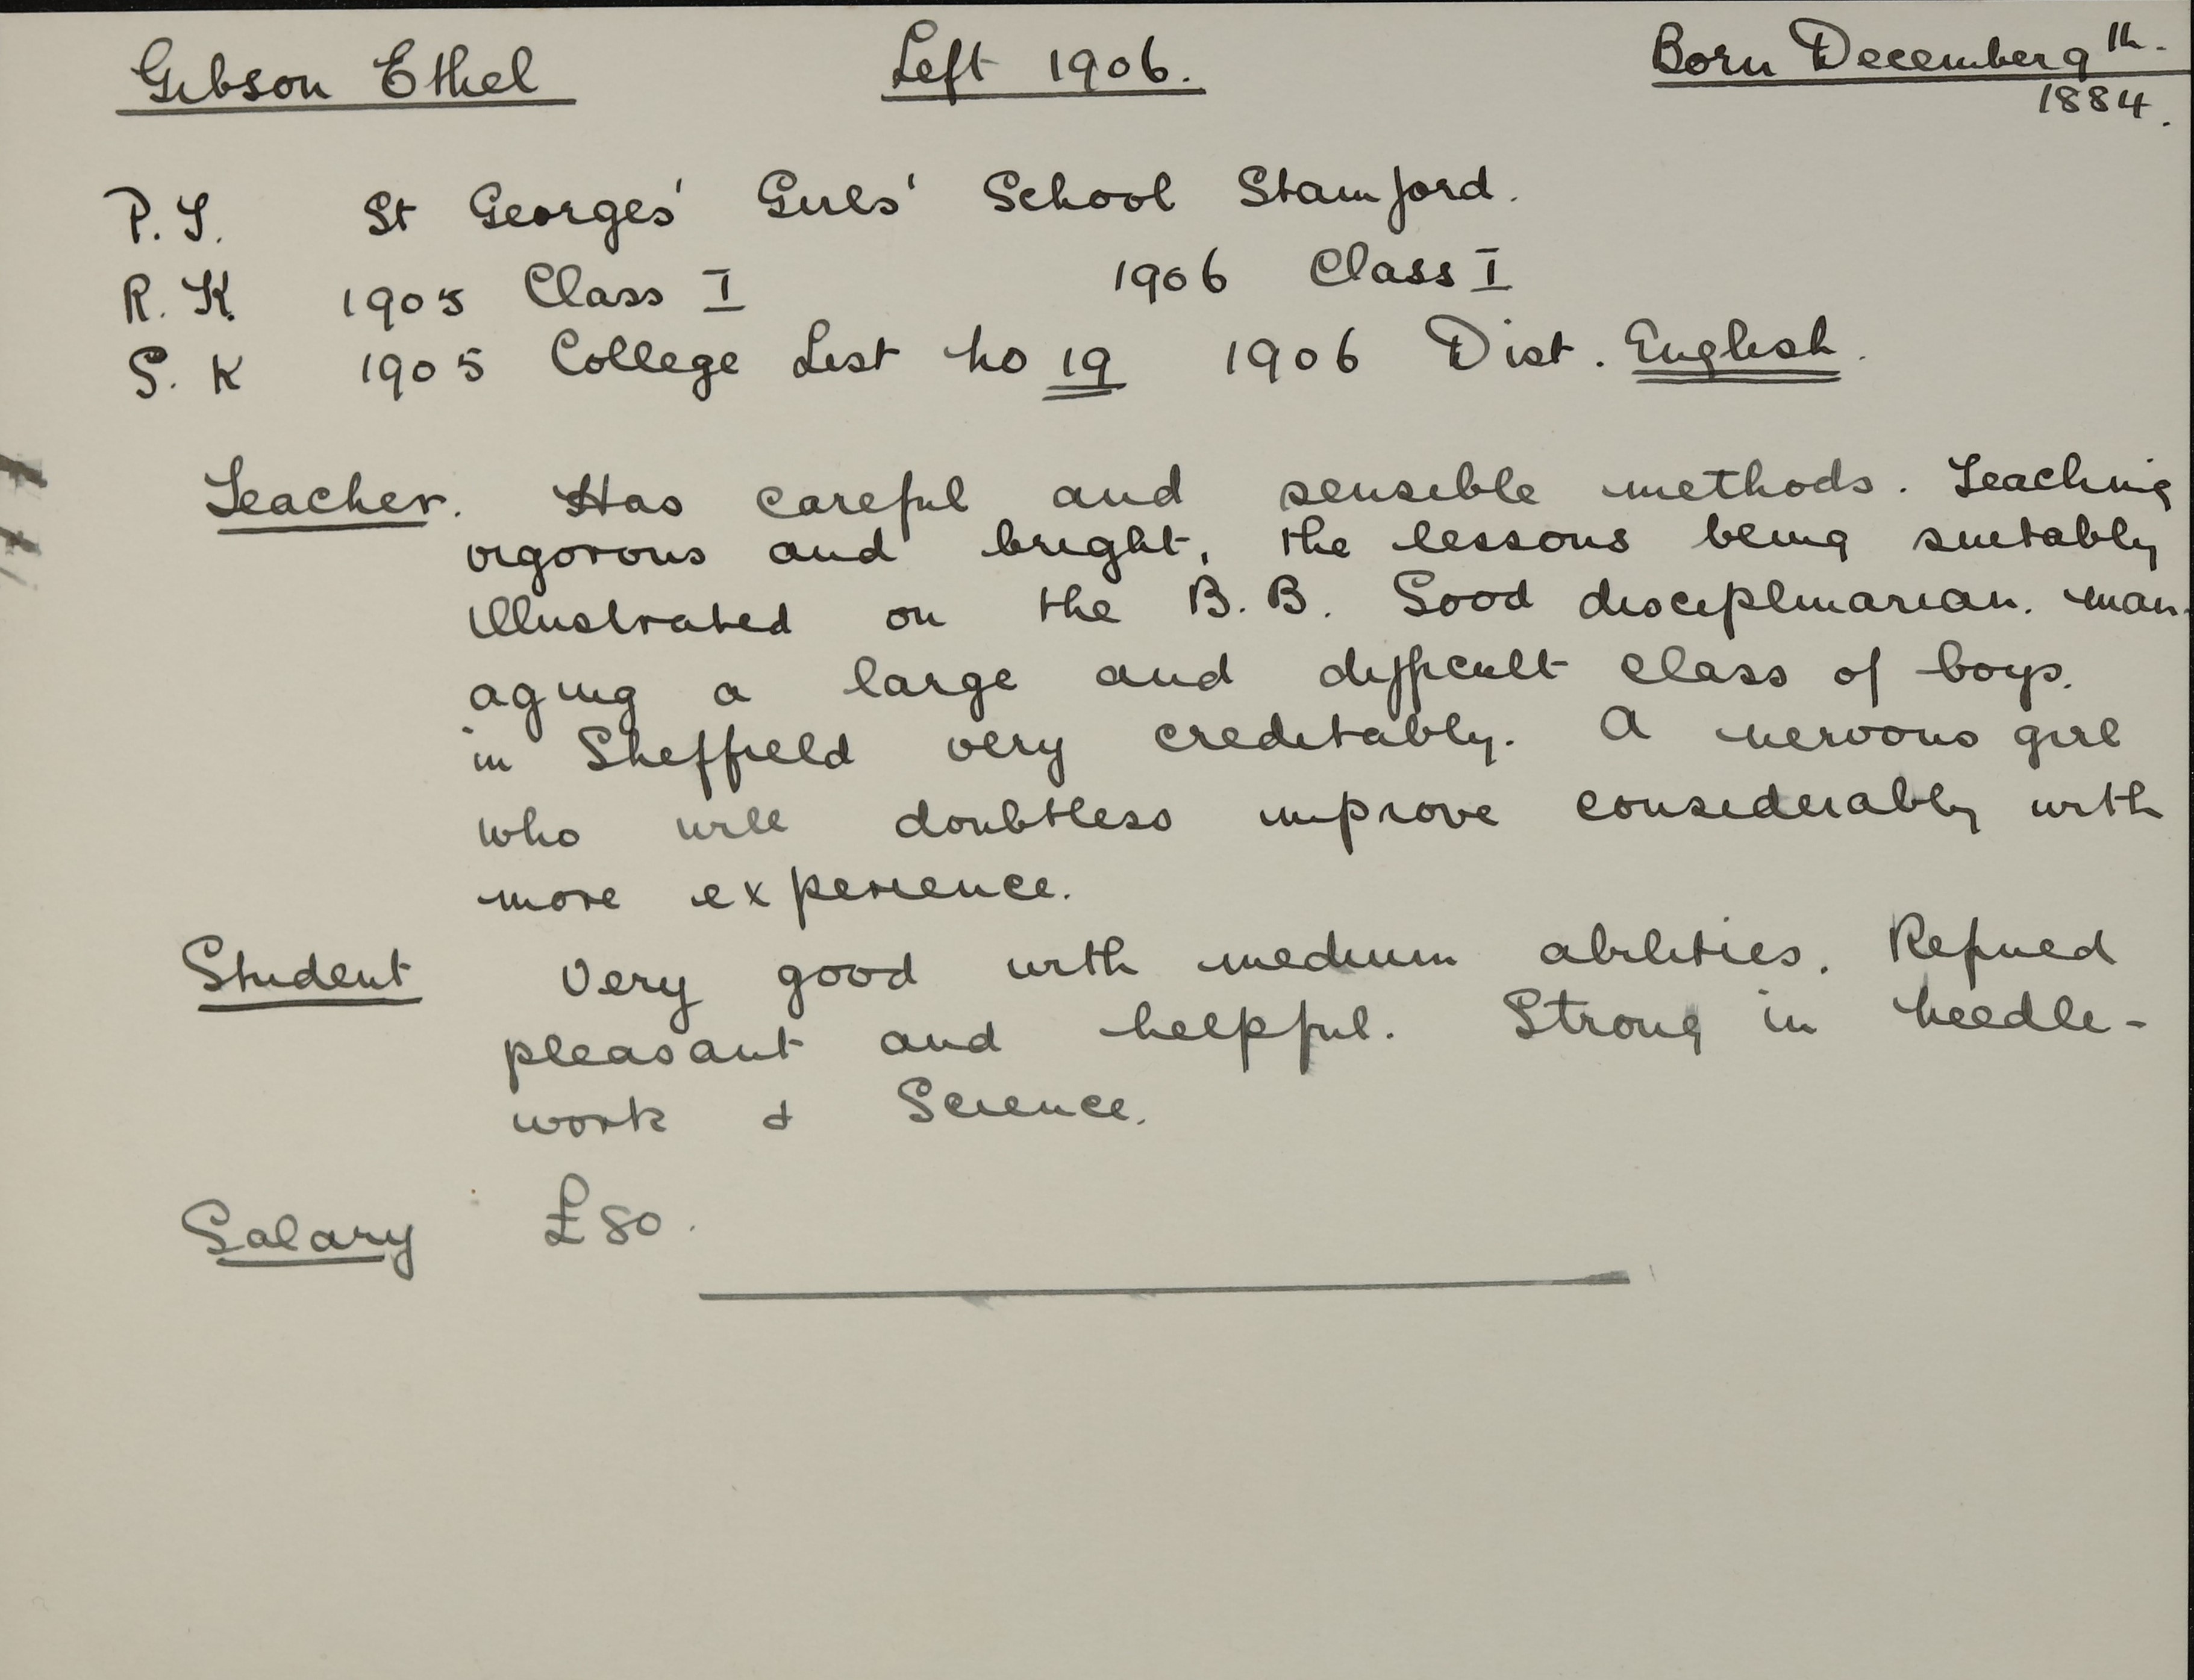 Gibson Ethel Left 1906. Born December 9th.
1884.
P.T. St Georges' Girls' School Stamford.
R.K 1905 Class I 1906 Class I
S.K 1905 College List No 19 1906 Dist. English.
Teacher. Has careful and sensible methods. Teaching
vigorous and bright, the lessons being suitably
illustrated on the B.B. Good disciplinarian. man-
aging a large and difficult class of boys.
in Sheffield very creditably. A nervous girl
who will doubtless improve considerably with
more experience.
Student Very good with medium abilities. Refined
pleasant and helpful. Strong in needle-
work & Science.
Salary £80.